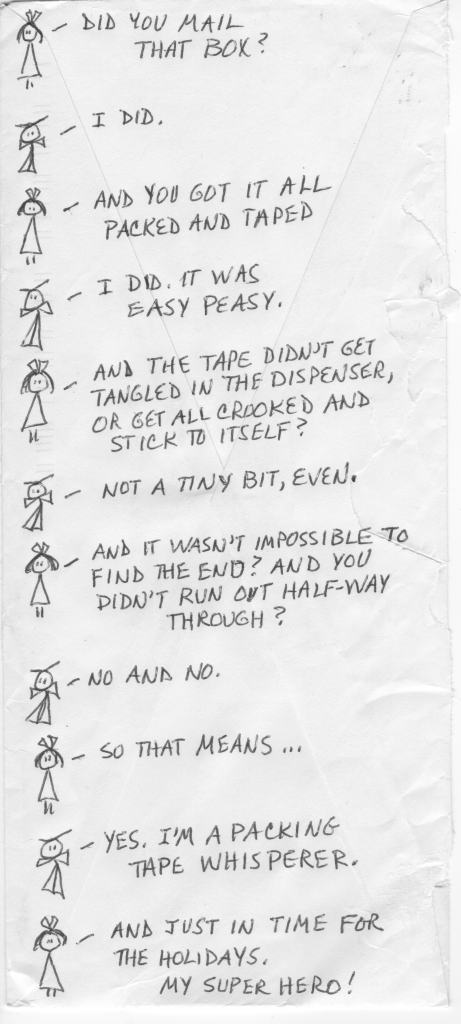 DID YOU MAIL
THAT BOX?
I DID.
AND YOU GOT IT ALL
PACKED AND TAPED
I DID. IT WAS
EASY PEASY.
AND THE TAPE DIDN'T GET
TANGLED IN THE DISPENSER,
OR GET ALL CROOKED AND
STICK TO ITSELF?
NOT A TINY BIT, EVEN.
AND IT WASN'T IMPOSSIBLE TO
FIND THE END? AND YOU
DIDN'T RUN OUT HALF-WAY
THROUGH?
NO AND NO.
SO THAT MEANS...
YES. I'M A PACKING
TAPE WHISPERER.
AND JUST IN TIME FOR
THE HOLIDAYS.
MY SUPER HERO!